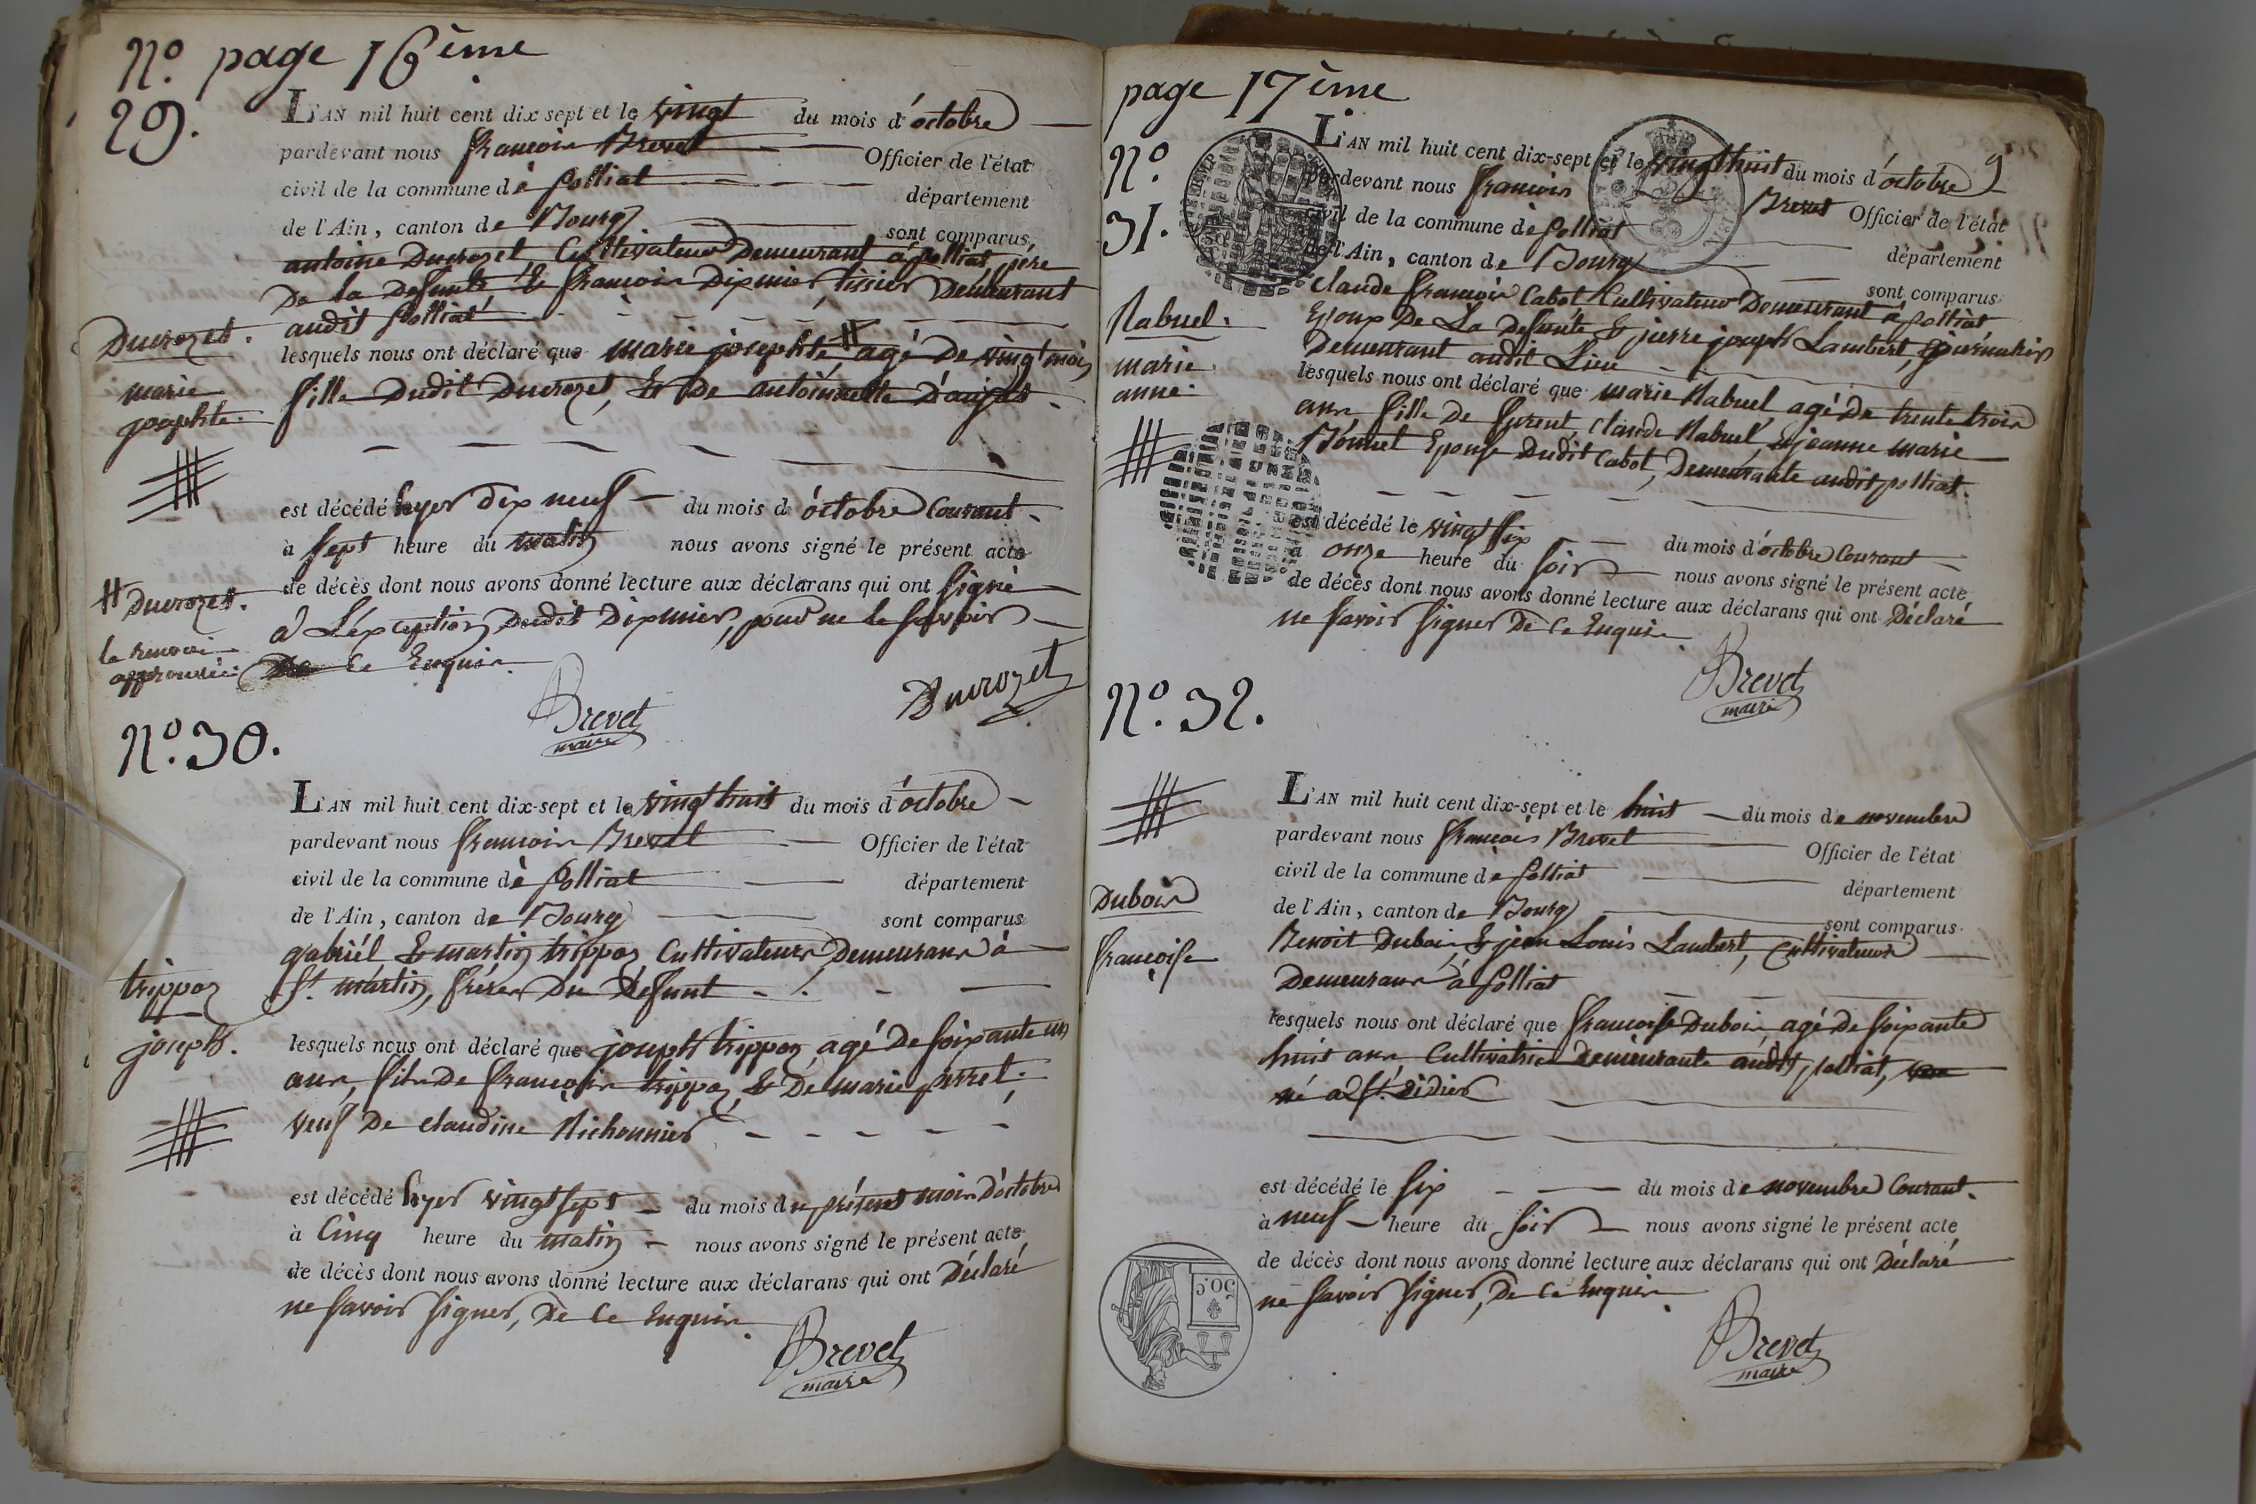 No. page 16ème
29.
L'AN mil huit cent dix-sept et le vingt du mois d'octobre
pardevant nous françois Brevet Officier de l'état
civil de la commune de polliat département
de l'Ain, canton de Bourg sont comparus
antoine Ducrozet, Cultivateur Demeurant à polliat, père
De la defunte & françois Dixmier, tissier Demeurant
audit polliat
Ducrozet.
marie
josephte.
lesquels nous ont déclaré que marie josephte # agé De vingt mois
fille Dudit Ducrozet, & De antoinette
est décédé hyer dix neuf du mois d'octobre Courant
à sept heure du matin nous avons signé le présent acte
de décès dont nous avons donné lecture aux déclarans qui ont signé
à L'exception Dudit Dixmier, pour ne le savoir
De Ce Enquis.
# Ducrozet.
le renvoi
approuvé.
Brevet
maire
Ducrozet
No. 30.
L'AN mil huit cent dix-sept et le vingt huit du mois d'octobre
pardevant nous françois Brevet Officier de l'état
civil de la commune de polliat département
de l'Ain, canton de Bourg sont comparus
gabriél & martin trippoz Cultivateurs, Demeurans à
St. martin, frères Du Défunt
trippoz
joseph.
lesquels nous ont déclaré que joseph trippoz, agé De soixante un
ans, fils de françois trippoz, & De marie perret,
veuf De claudine Richonnier
est décédé hyer vingt sept du mois du présent mois D'octobre
à Cinq heure du matin nous avons signé le présent acte
de décès dont nous avons donné lecture aux déclarans qui ont Déclaré
ne savoir signer, De Ce Enquis.
Brevet
maire
page 17ème
No.
31.
L'AN mil huit cent dix-sept et le vingt huit du mois d'octobre 9
pardevant nous françois Brevet Officier de l'état
civil de la commune de polliat département
de l'Ain, canton de Bourg sont comparus
claude françois Cabot Cultivateur Demeurant à polliat,
Epoux De La defunte & pierre joseph Lambert, journalier
Demeurant audit Lieu
Rabuel.
marie
anne.
lesquels nous ont déclaré que marie Rabuel agé De trente trois
ans fille De furent claude Rabuel, & jeanne marie
Bonnet Epouse Dudit Cabot, Demeurante audit polliat.
est décédé le vingt six du mois d'octobre Courant
à onze heure du soir nous avons signé le présent acte
de décès dont nous avons donné lecture aux déclarans qui ont Déclaré
ne savoir signer De Ce Enquis.
Brevet
maire
No. 32.
L'AN mil huit cent dix-sept et le huit du mois de novembre
pardevant nous françois Brevet Officier de l'état
civil de la commune de polliat département
de l'Ain, canton de Bourg sont comparus
Benoit Dubois, & jean Louis Lambert, Cultivateurs
Demeurans à polliat
Dubois
françoise
lesquels nous ont déclaré que francoise Dubois agé De soixante
huit ans, Cultivatrice Demeurante audit polliat,
né à St. didier
est décédé le six du mois de novembre Courant.
à neuf heure du soir nous avons signé le présent acte
de décès dont nous avons donné lecture aux déclarans qui ont Déclaré
ne savoir signer, De Ce Enquis.
50 c
Brevet
maire